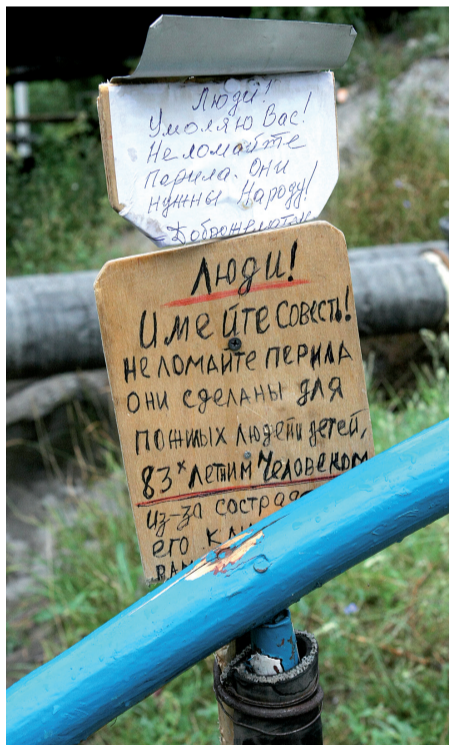 Людей!
Умоляю Вас!
Не ломайте
перила. Они
нужны Народу!
Люди!
Имейте Совесть!
не ломайте перила
они сделаны для
пожилых людей и детей,
83х летним Человеком
из-за
его